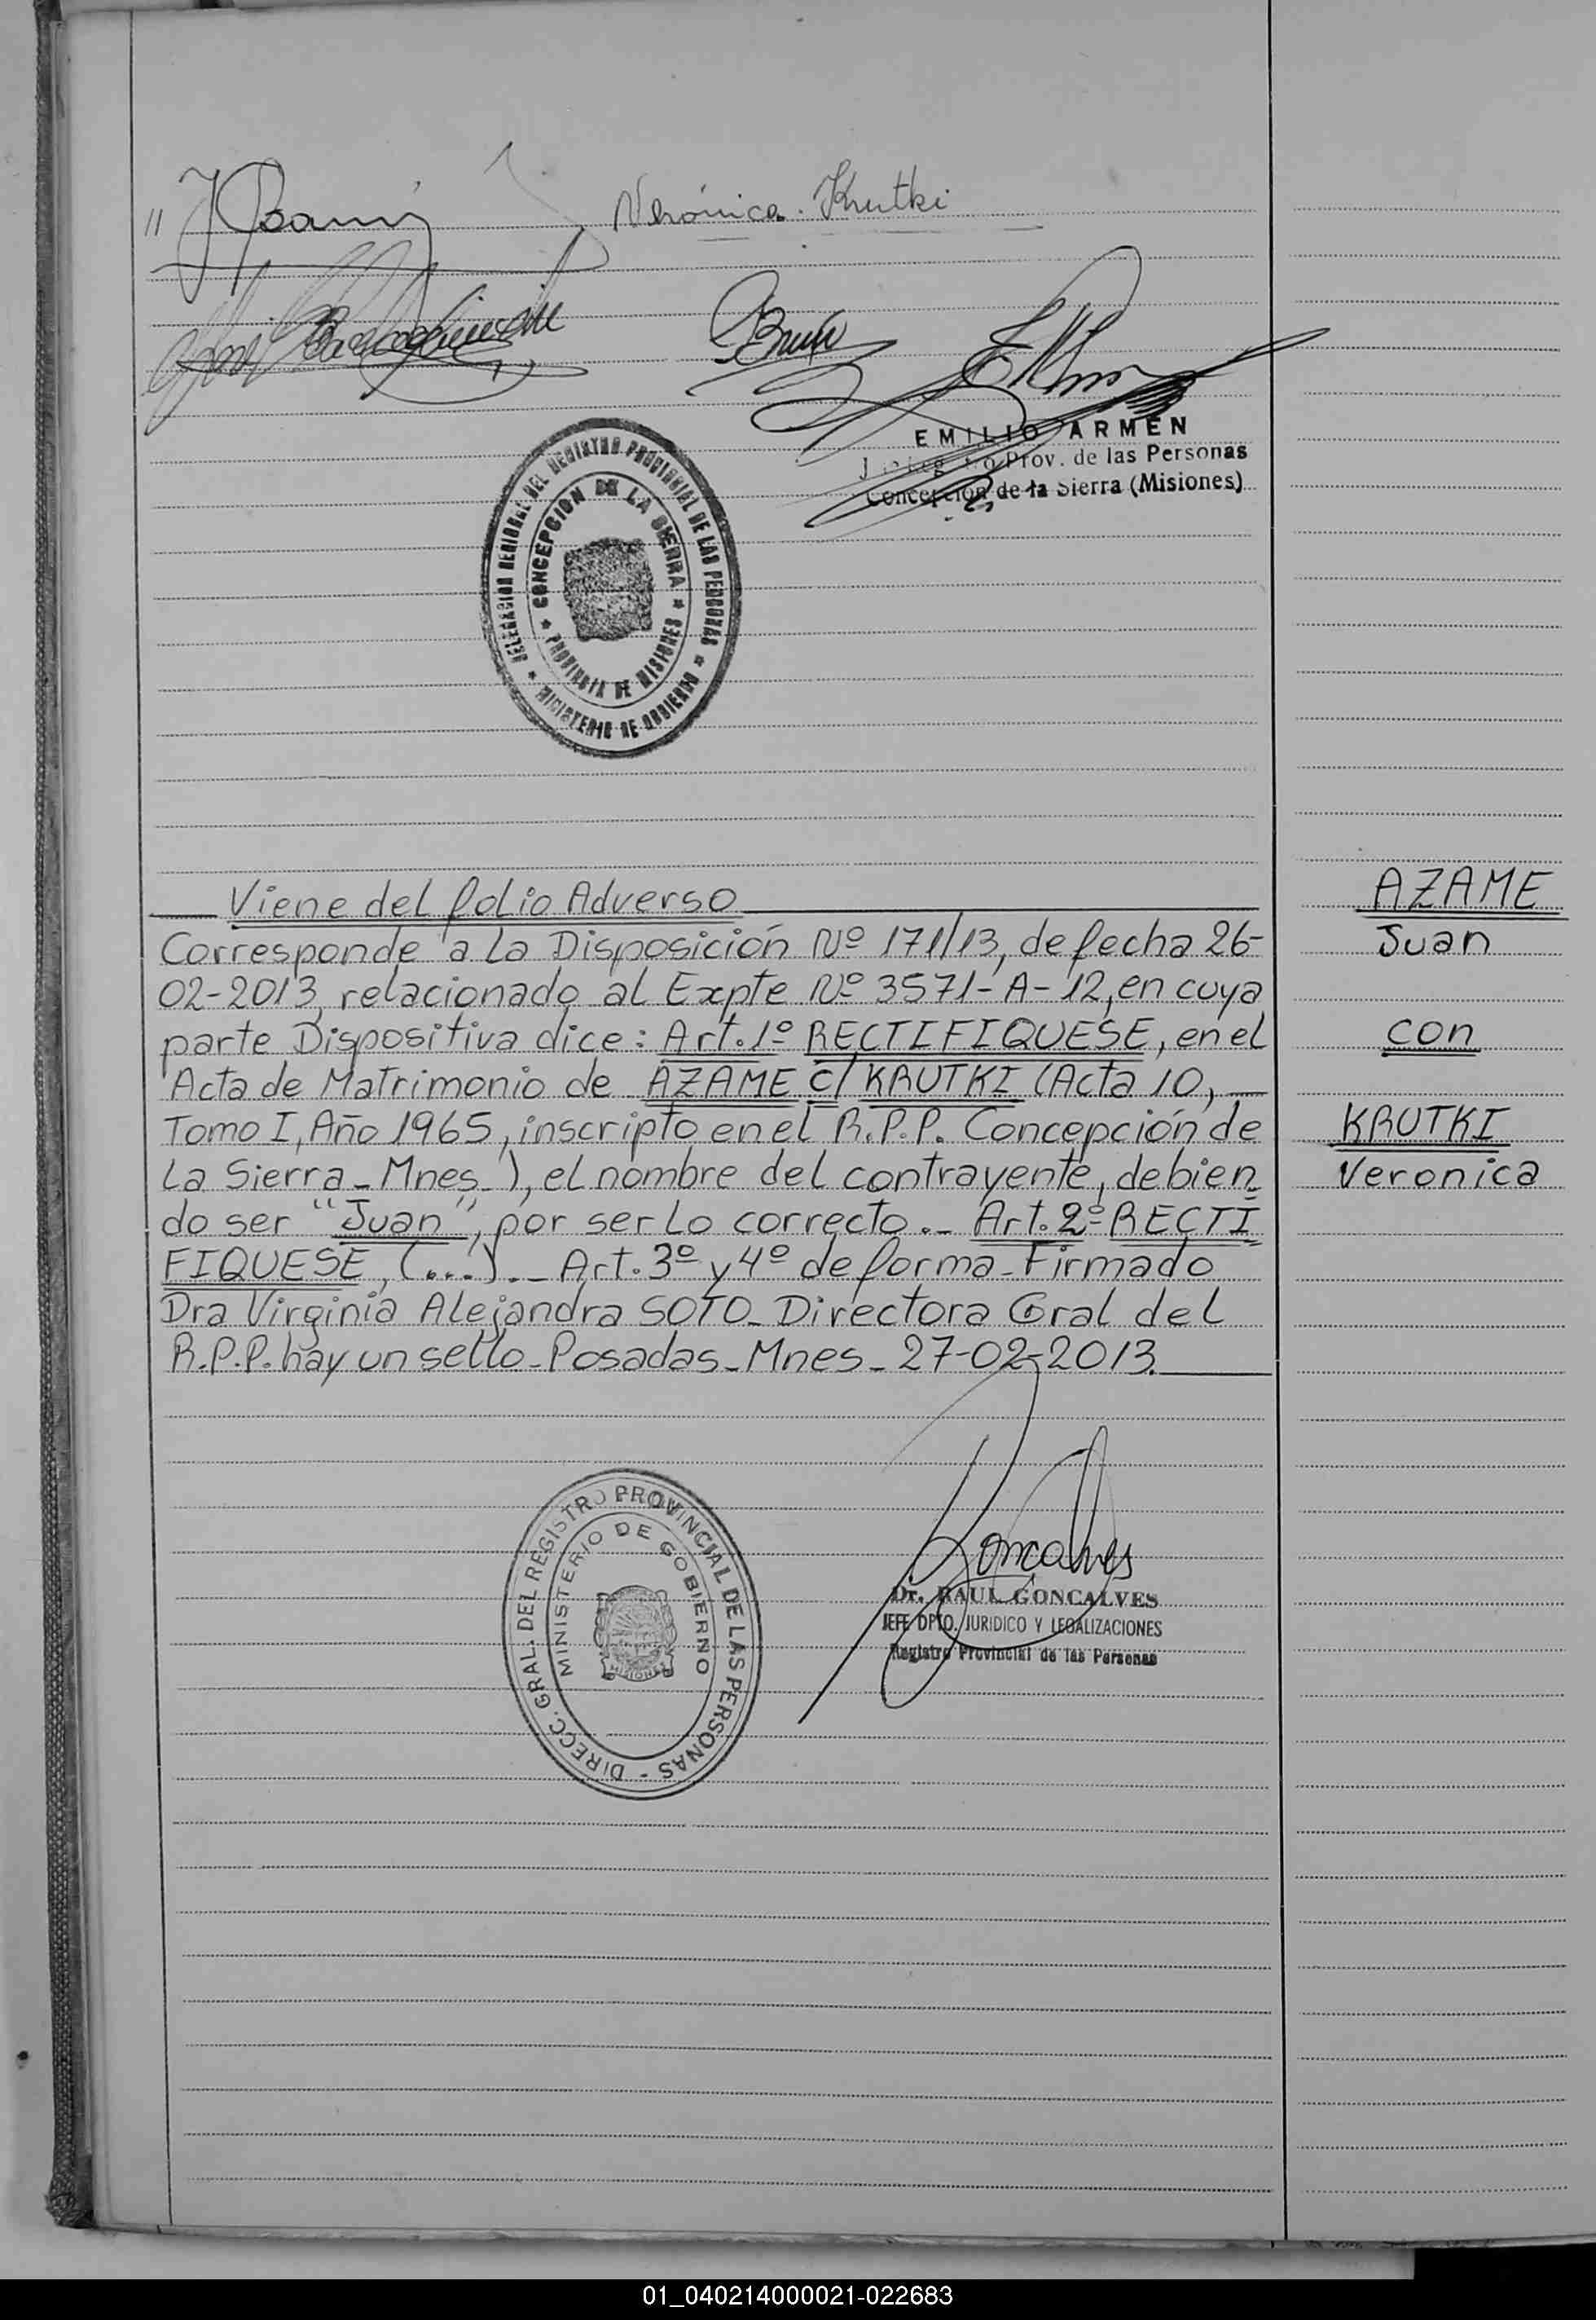 "
Verónica Krutki
EMILIO ARMEN
Prov. de las Personas
Concepción de la Sierra (Misiones)
DELEGACION REGIONAL DEL REGISTRO PROVINCIAL DE LAS PERSONAS
* MINISTERIO DE GOBIERNO *
CONCEPCION DE LA SIERRA
* PROVINCIA DE MISIONES *
Viene del folio Adverso
Corresponde a la Disposición Nº 171/13, de fecha 26-
02-2013, relacionado al Expte Nº 3571-A-12, en cuya
parte Dispositiva dice: Art. 1º RECTIFIQUESE, en el
Acta de Matrimonio de AZAME c/ KRUTKI (Acta 10,
Tomo I, Año 1965, inscripto en el R.P.P. Concepción de
la Sierra - Mnes -), el nombre del contrayente, debien
do ser "Juan", por ser lo correcto.- Art. 2º RECTI
FIQUESE, (...).- Art. 3º y 4º de forma - Firmado
Dra Virginia Alejandra SOTO - Directora Gral del
R.P.P. hay un sello - Posadas - Mnes - 27-02-2013.
AZAME
Juan
con
KRUTKI
Veronica
DIRECC. GRAL. DEL REGISTRO PROVINCIAL DE LAS PERSONAS -
MINISTERIO DE GOBIERNO
MISIONES
Goncalves
Dr. RAUL GONCALVES
JEFE DPTO. JURIDICO Y LEGALIZACIONES
Registro Provincial de las Personas
01_040214000021-022683